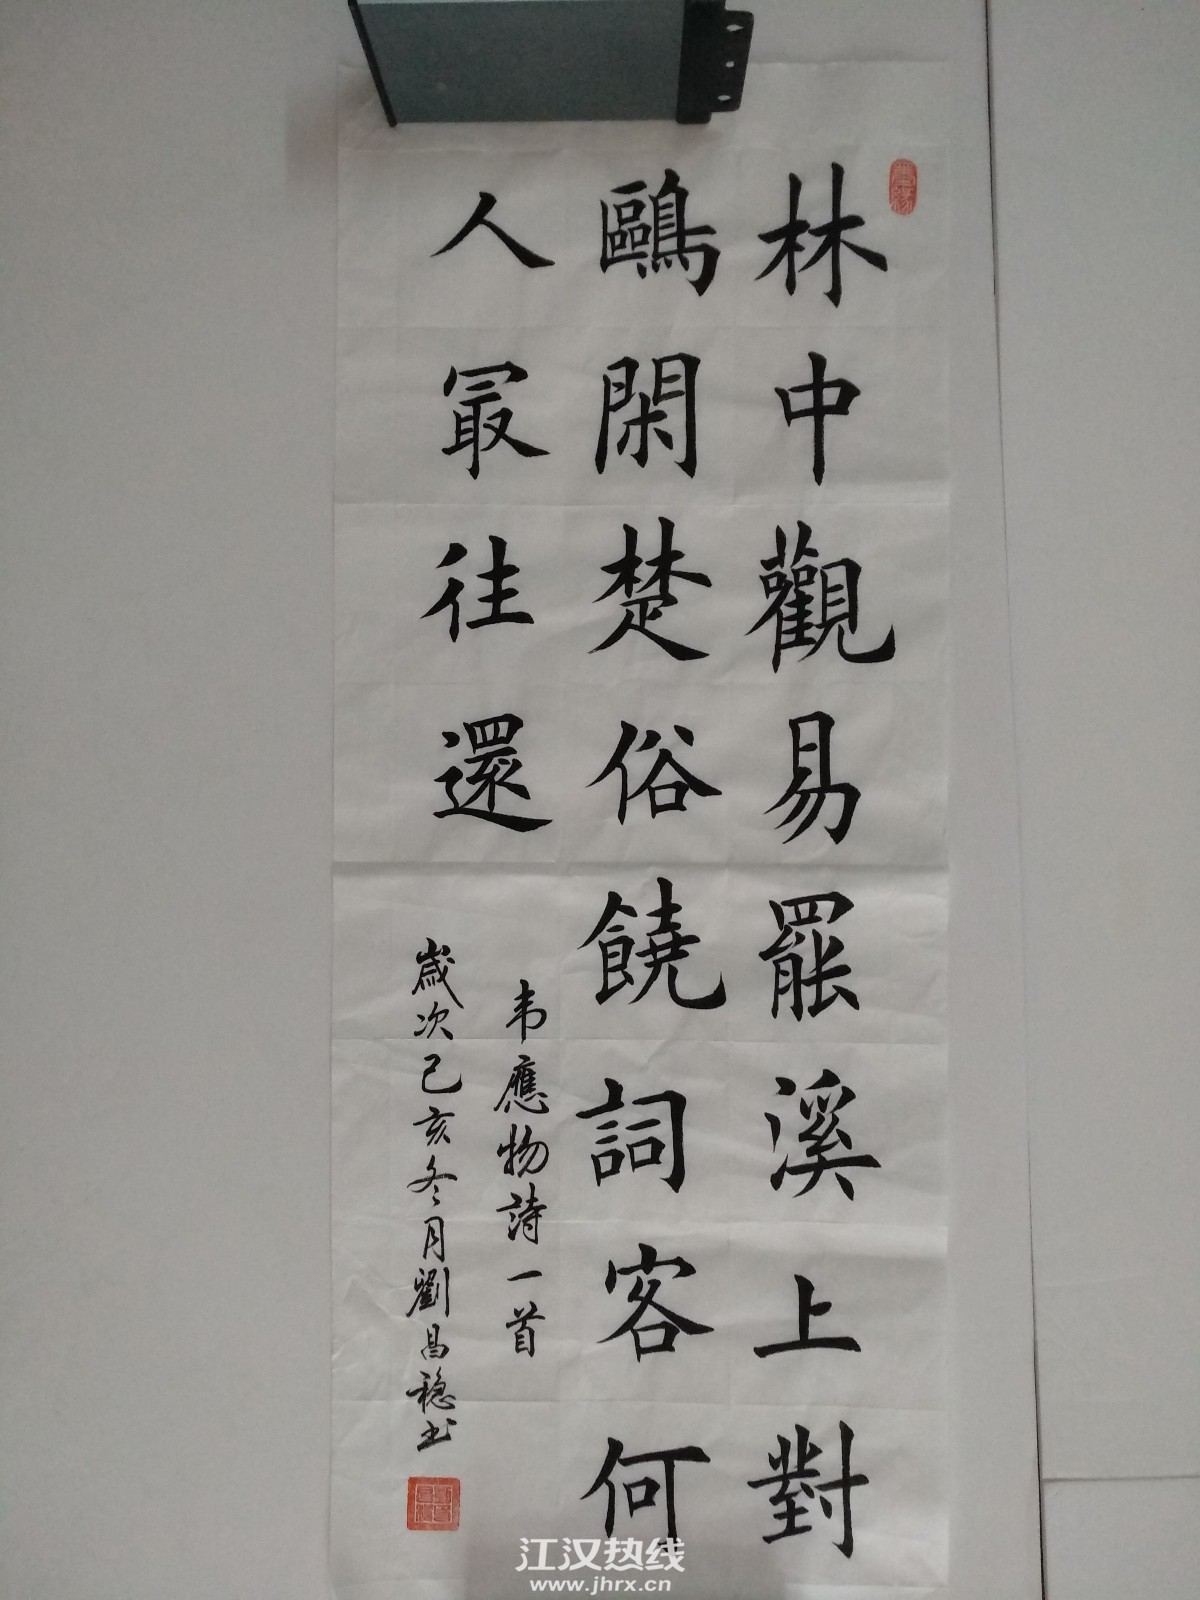 林中觀易罷溪上對
鷗閑楚俗饒詞客何
人冣往還
韦應物詩一首
歲次己亥冬月劉昌穏书
江汉热线
www.jhrx.cn